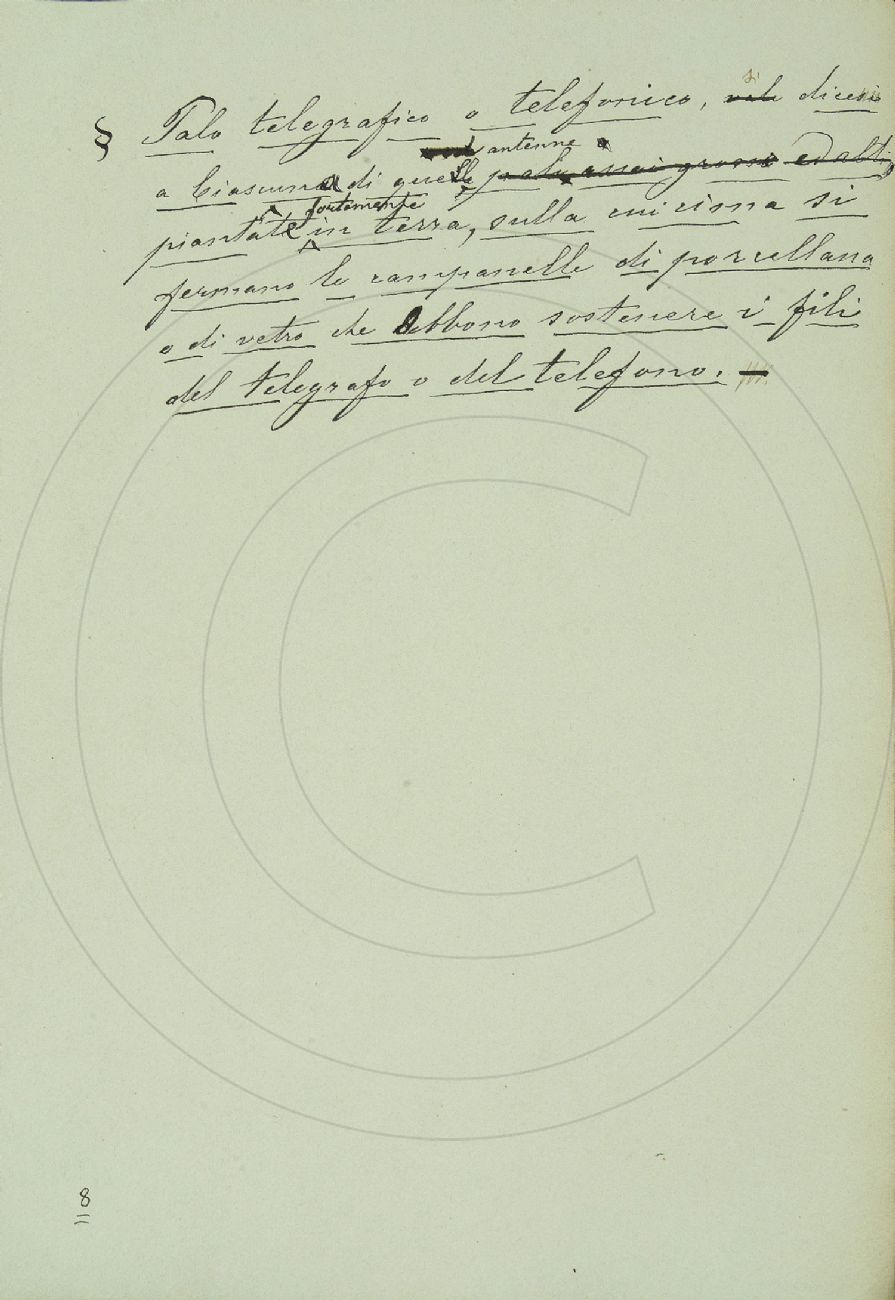 si
§ Palo telegrafico o telefonico, dicesi
antenne
a ciascuna di quelle pali assai grossi ed alti,
fortemente
piantate in terra, sulla cui cima si
fermano le campanelle di porcellana
o di vetro che debbono sostenere i fili
del telegrafo o del telefono. —
8